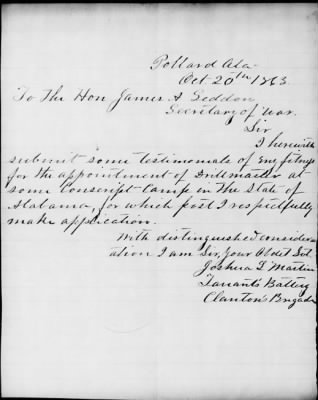 Pollard Ala
Oct 20th 1863.
To The Hon James A Seddon
Secretary of War.
Sir
I herewith
submit some testimonials of my fitness
for the appointment of Drillmaster at
some Conscript Camp in the State of
Alabama, for which post I respectfully
make application.
With distinguished consider-
ation I am Sir, Your Obdt Svt.
Joshua L Martin
Tarrant's Battery
Clanton's Brigade